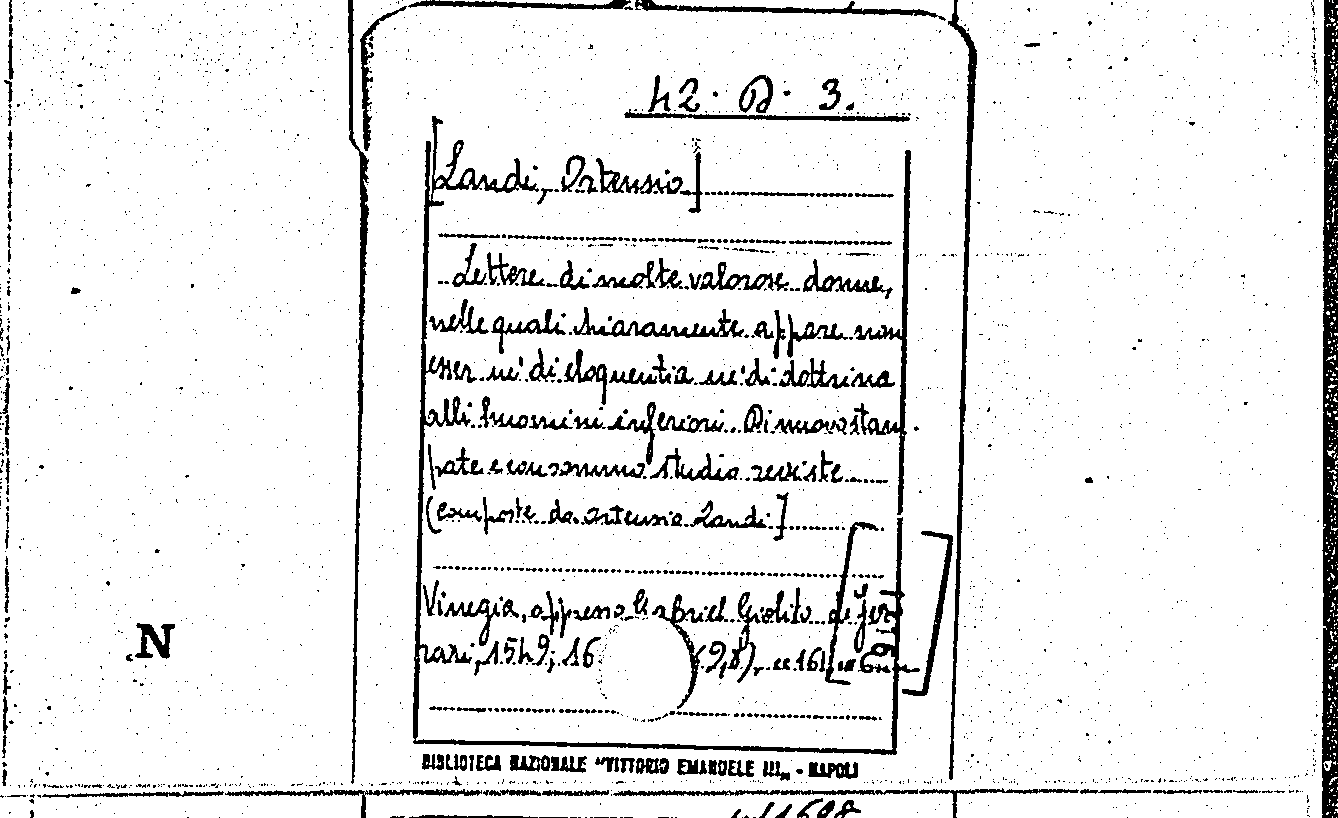 42. D. 3.
[Landi, Ortensio]
Lettere di molte valorose donne,
nelle quali chiaramente appare non
esser nè di eloquentia nè di dottrina
alli huomini inferiori. Di nuovo stam-
pate e con sommo studio reviste
[composte da Ortensio Landi]
Vinegia, appresso Gabriel Giolito de Fer
rari, 1549; 16 (9,8), cc 161
N
BIBLIOTECA NAZIONALE "VITTORIO EMANUELE III„ - NAPOLI